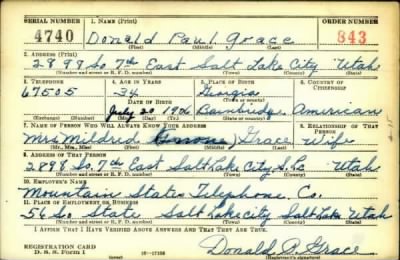 SERIAL NUMBER 1. NAME (Print) ORDER NUMBER
4740 Donald Paul Grace 843
(First) (Middle) (Last)
2. ADDRESS (Print)
2898 So 7th East Salt Lake City Utah
(Number and street or R. F. D. number) (Town) (County) (State)
3. TELEPHONE 4. AGE IN YEARS 5. PLACE OF BIRTH 6. COUNTRY OF CITIZENSHIP
67505 34 Georgia
DATE OF BIRTH (Town or county)
July 20 1906 Bainbridge American
(Mo.) (Day) (Yr.) (State or country)
7. NAME OF PERSON WHO WILL ALWAYS KNOW YOUR ADDRESS 8. RELATIONSHIP OF THAT PERSON
Mrs Mildred Grace Wife
(Mr., Mrs., Miss) (First) (Middle) (Last)
9. ADDRESS OF THAT PERSON
2898 So. 7th East Salt Lake City S.L. Utah
(Number and street or R. F. D. number) (Town) (County) (State)
10. EMPLOYER'S NAME
Mountain States Telephone Co.
11. PLACE OF EMPLOYMENT OR BUSINESS
56 So State Salt Lake city Salt Lake Utah
(Number and street or R. F. D. number) (Town) (County) (State)
I AFFIRM THAT I HAVE VERIFIED ABOVE ANSWERS AND THAT THEY ARE TRUE.
REGISTRATION CARD
D. S. S. Form 1 Donald P. Grace
(Registrant's signature)